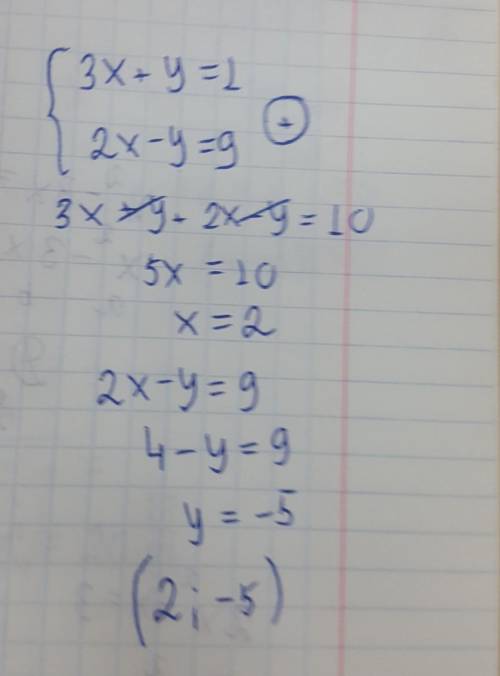 3x + y = 1
2x - y = 9 +
3x + y + 2x - y = 10
5x = 10
x = 2
2x - y = 9
4 - y = 9
y = -5
(2; -5)